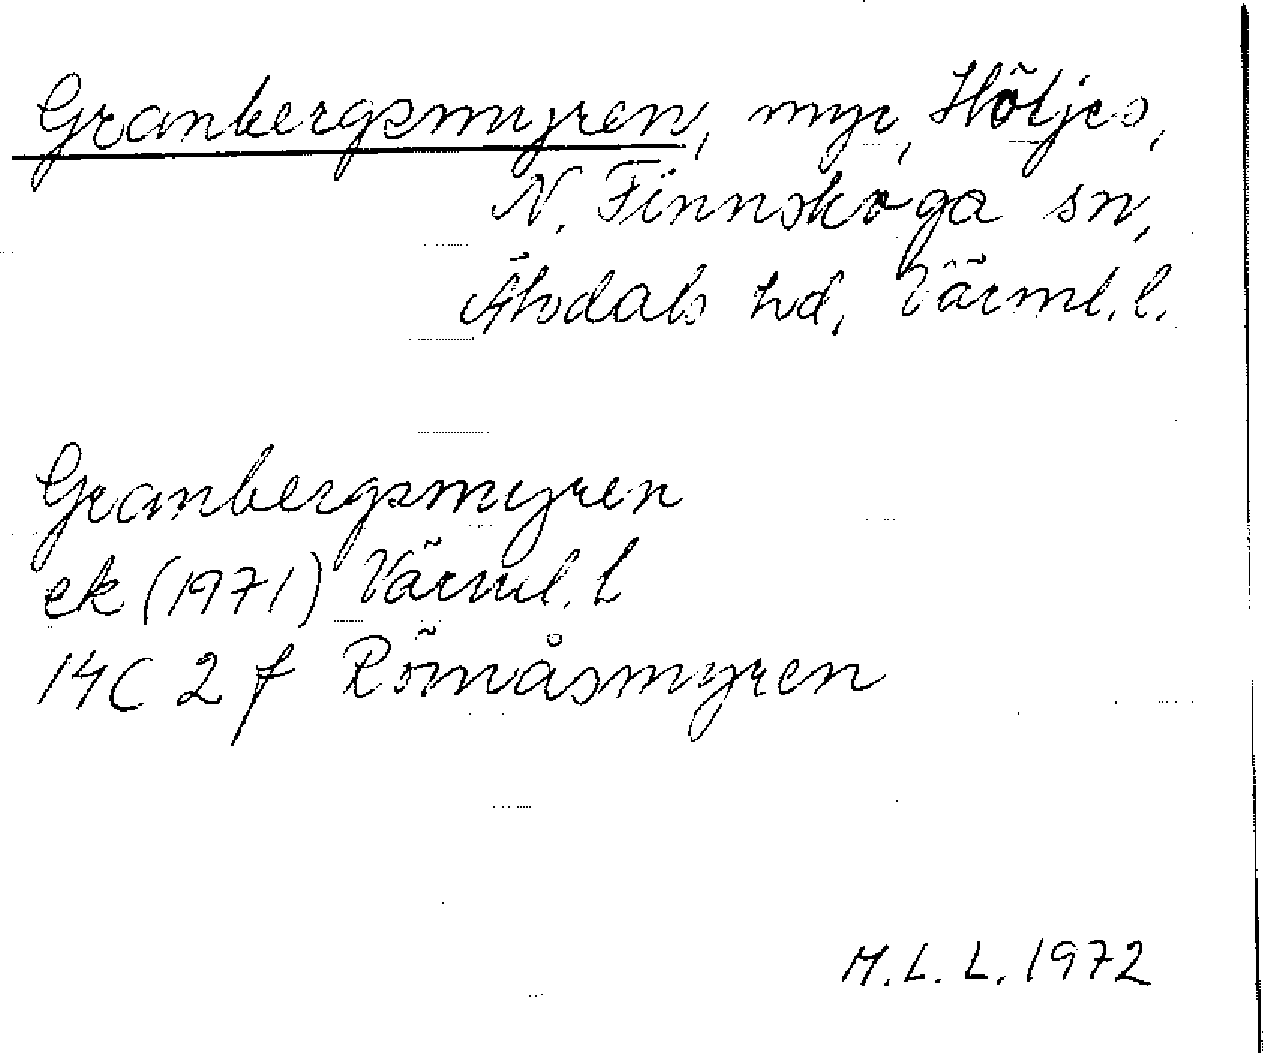 Granbergsmyren, myr, Höljes,
N. Finnskoga sn,
Älvdals hd, Värml. l.
Granbergsmyren
ek (1971) Värml. l
14C 2 f Römåsmyren
M. L. L. 1972